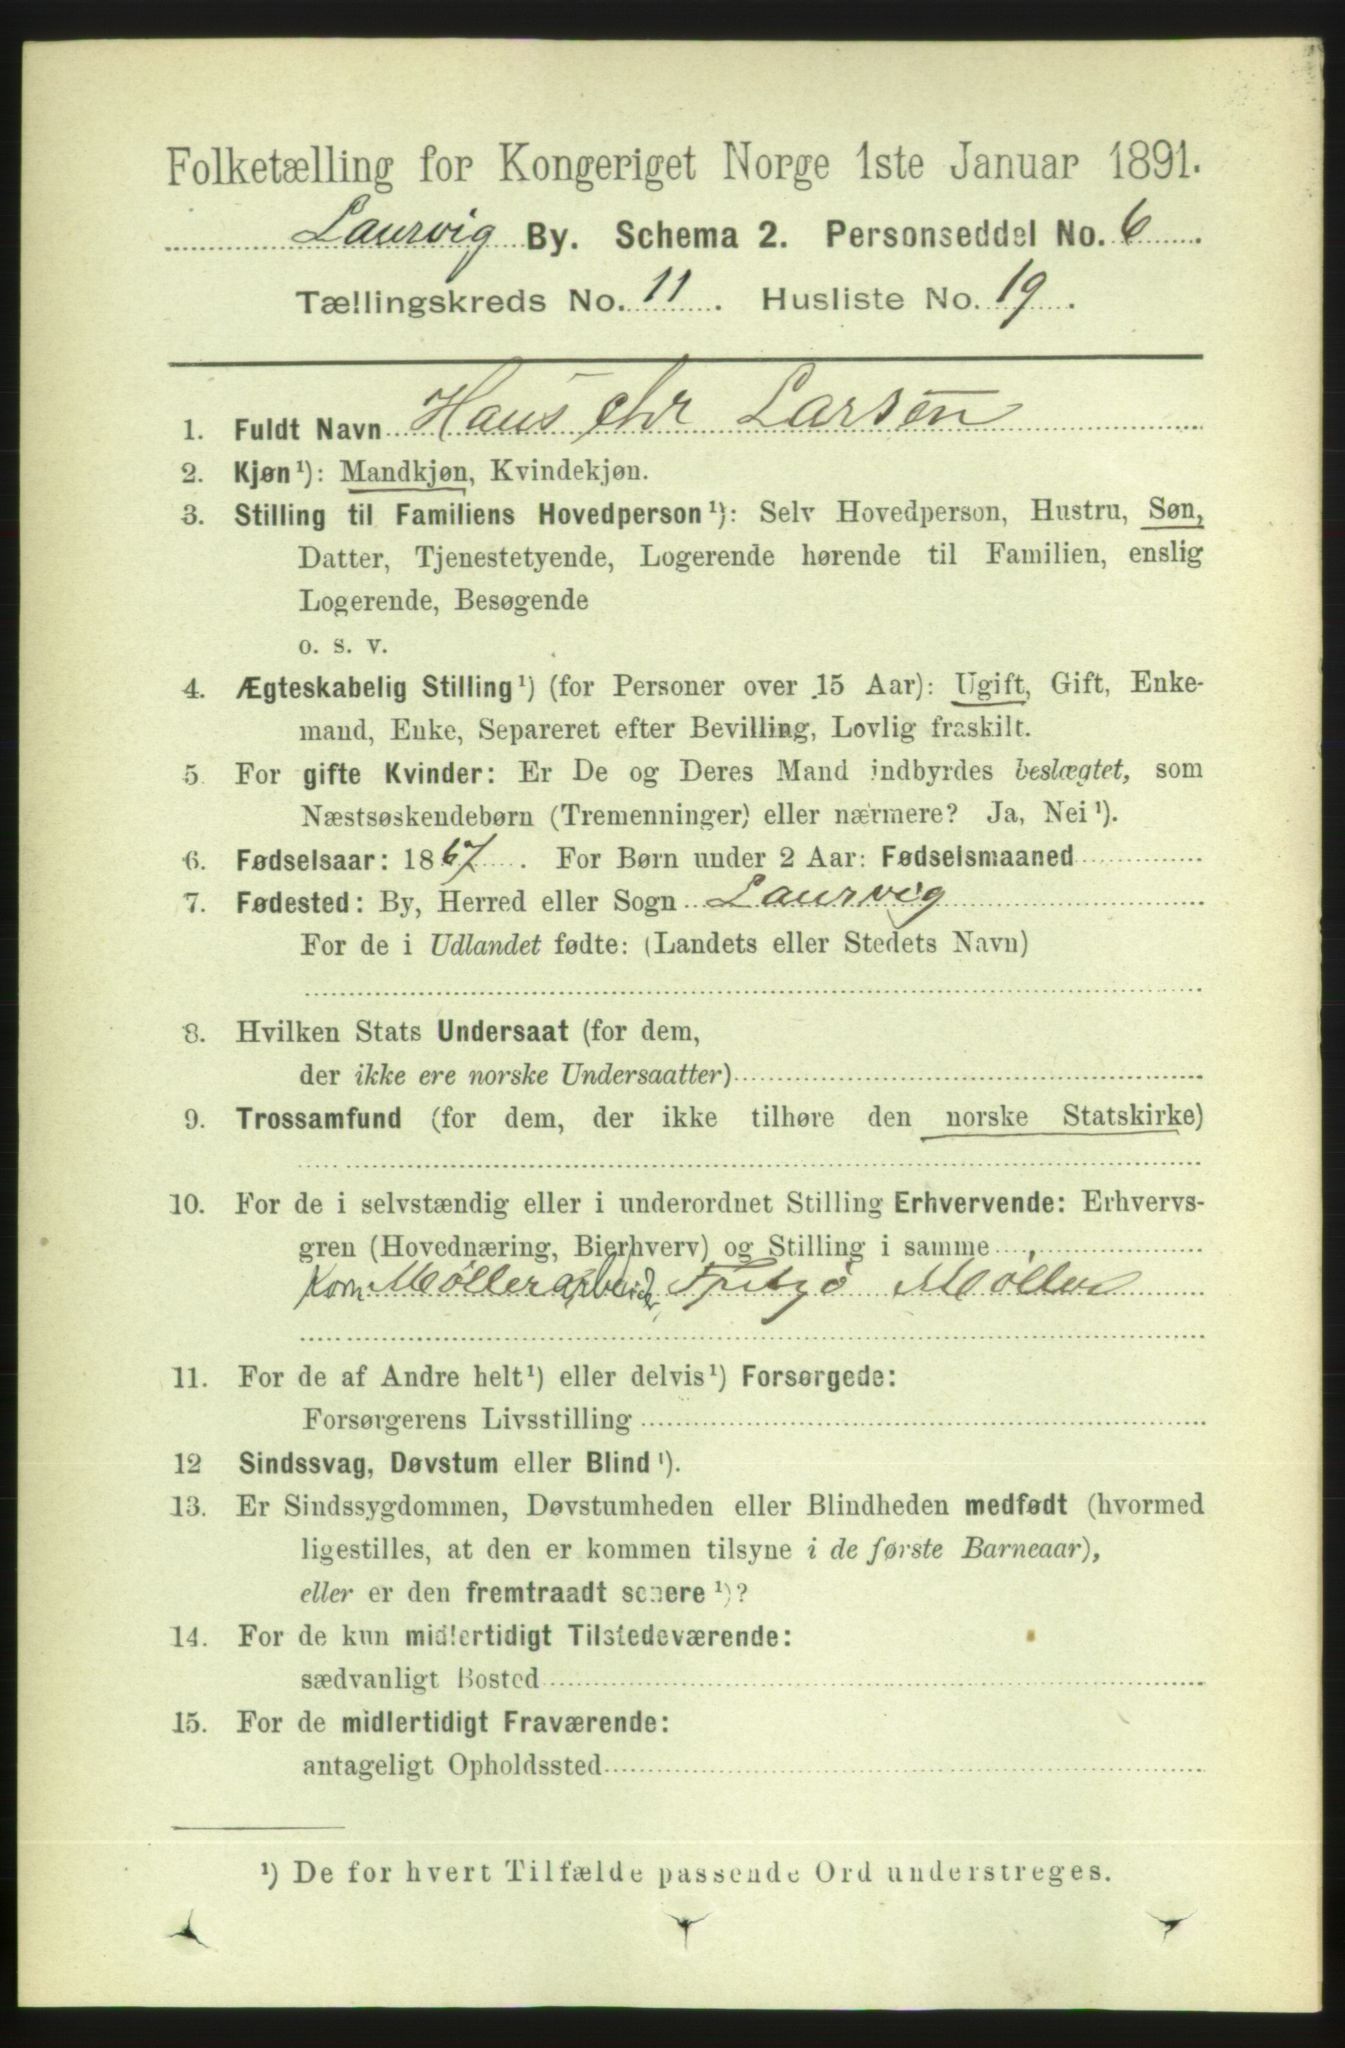 Folketælling for Kongeriget Norge 1ste Januar 1891.
Laurvig By. Schema 2. Personseddel No. 6.
Tællingskreds No. 11. Husliste No. 19.
1. Fuldt Navn Hans Chr Larsen
2. Kjøn¹): Mandkjøn, Kvindekjøn.
3. Stilling til Familiens Hovedperson¹): Selv Hovedperson, Hustru, Søn,
Datter, Tjenestetyende, Logerende hørende til Familien, enslig
Logerende, Besøgende
o. s. v.
4. Ægteskabelig Stilling¹) (for Personer over 15 Aar): Ugift, Gift, Enke-
mand, Enke, Separeret efter Bevilling, Lovlig fraskilt.
5 For gifte Kvinder: Er De og Deres Mand indbyrdes beslægtet, som
Næstsøskendebørn (Tremenninger) eller nærmere? Ja, Nei¹).
6. Fødselsaar: 1867. For Børn under 2 Aar: Fødselsmaaned
7. Fødested: By, Herred eller Sogn Laurvig
For de i Udlandet fødte: (Landets eller Stedets Navn)
8. Hvilken Stats Undersaat (for dem,
der ikke ere norske Undersaatter)
9. Trossamfund (for dem, der ikke tilhøre den norske Statskirke)
10. For de i selvstændig eller i underordnet Stilling Erhvervende: Erhvervs-
gren (Hovednæring, Bierhverv) og Stilling i samme
Korn Møllerarbeider Fritzö Møller
11. For de af Andre helt¹) eller delvis¹) Forsørgede:
Forsørgerens Livsstilling
12 Sindssvag, Døvstum eller Blind¹).
13. Er Sindssygdommen, Døvstumheden eller Blindheden medfødt (hvormed
ligestilles, at den er kommen tilsyne i de første Barneaar),
eller er den fremtraadt senere¹)?
14. For de kun midlertidigt Tilstedeværende:
sædvanligt Bosted
15. For de midlertidigt Fraværende:
antageligt Opholdssted
¹) De for hvert Tilfælde passende Ord understreges.